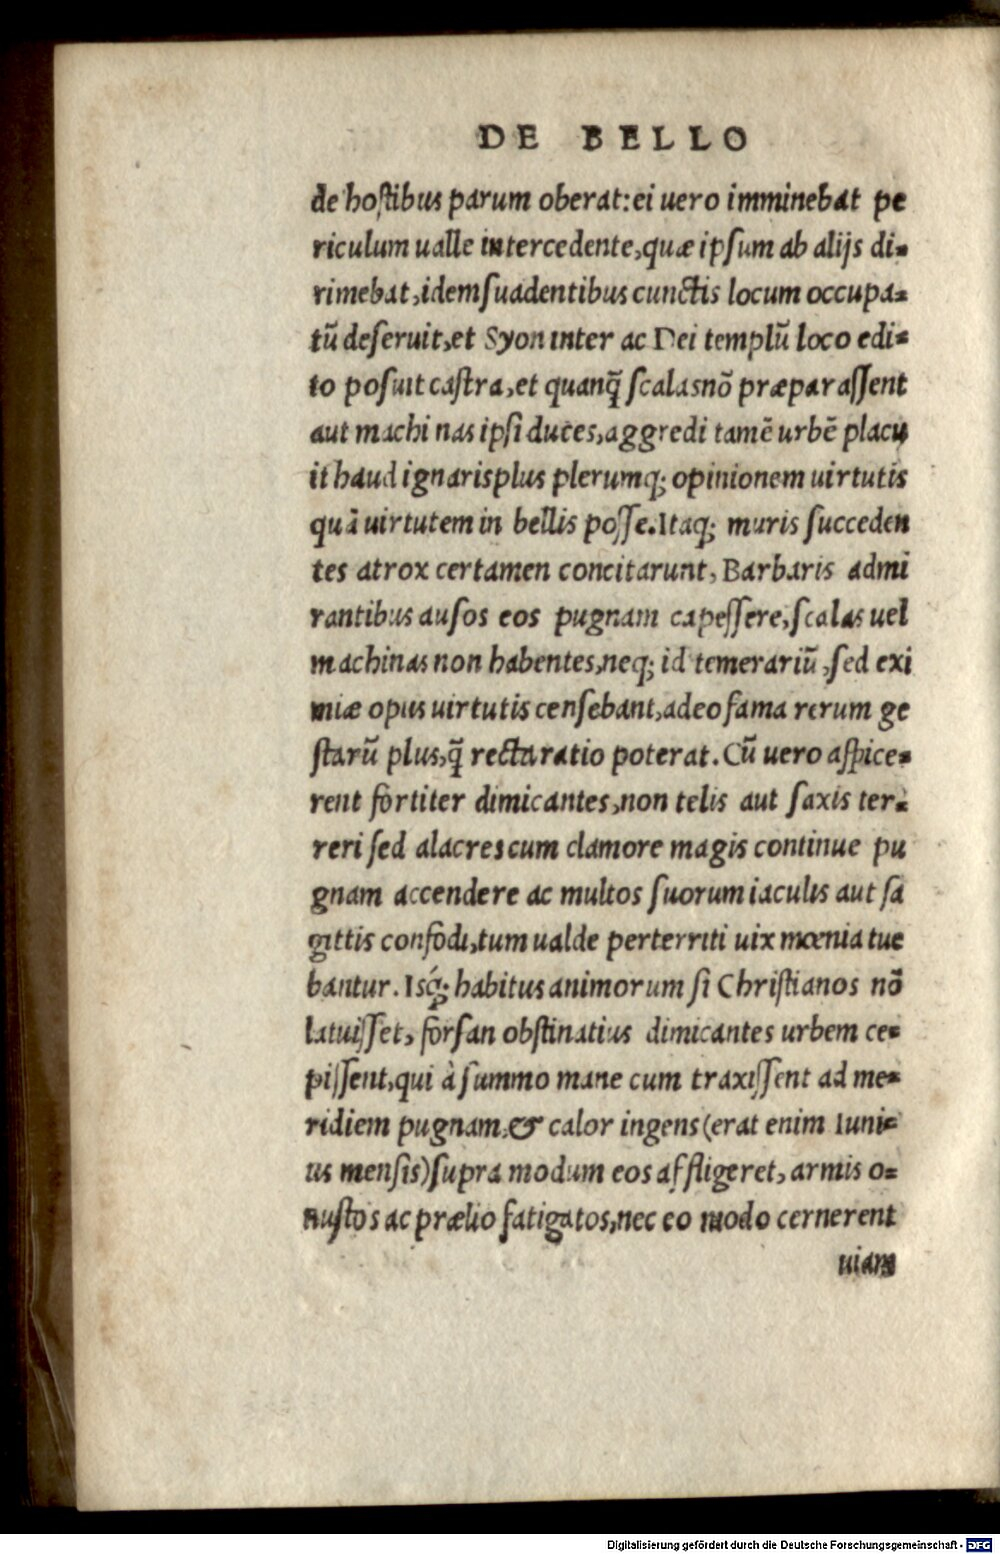 DE BELLO
de hostibus parum oberat: ei uero imminebat pe
riculum ualle intercedente, quæ ipsum ab alijs di-
rimebat, idem suadentibus cunctis locum occupa-
tũ deseruit, et Syon inter ac Dei templũ loco edi-
to posuit castra, et quanq̃ scalas nõ præparassent
aut machinas ipsi duces, aggredi tamẽ urbẽ placu
it haud ignaris plus plerumq; opinionem uirtutis
quã uirtutem in bellis posse. Itaq; muris succeden
tes atrox certamen concitarunt, Barbaris admi
rantibus ausos eos pugnam capessere, scalas uel
machinas non habentes, neq; id temerariũ, sed exi
miæ opus uirtutis censebant, adeo fama rerum ge
starũ plus, q̃ recta ratio poterat. Cũ uero aspice-
rent fortiter dimicantes, non telis aut saxis ter-
reri sed alacres cum clamore magis continue pu
gnam accendere ac multos suorum iaculis aut sa
gittis confodi, tum ualde perterriti uix mœnia tue
bantur. Isq́; habitus animorum si Christianos nõ
latuisset, forsan obstinatius dimicantes urbem ce-
pissent, qui à summo mane cum traxissent ad me-
ridiem pugnam, & calor ingens (erat enim Iuni-
us mensis) supra modum eos affligeret, armis o-
nustos ac prælio fatigatos, nec eo modo cernerent
uiam
Digitalisierung gefördert durch die Deutsche Forschungsgemeinschaft - DFG